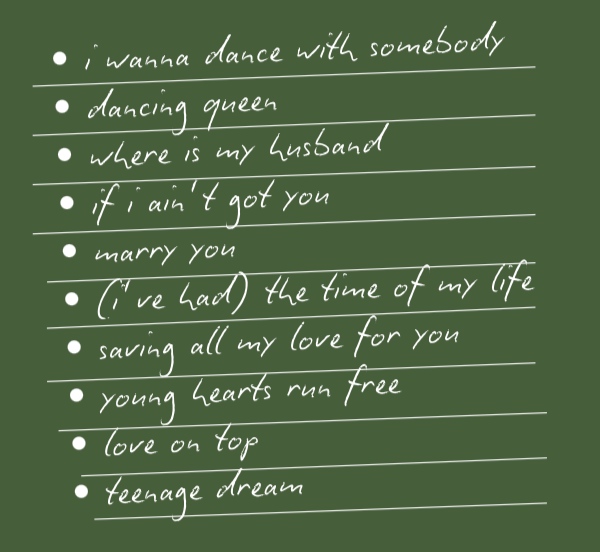 i wanna dance with somebody
dancing queen
where is my husband
if i ain't got you
marry you
(i've had) the time of my life
saving all my love for you
young hearts run free
love on top
teenage dream